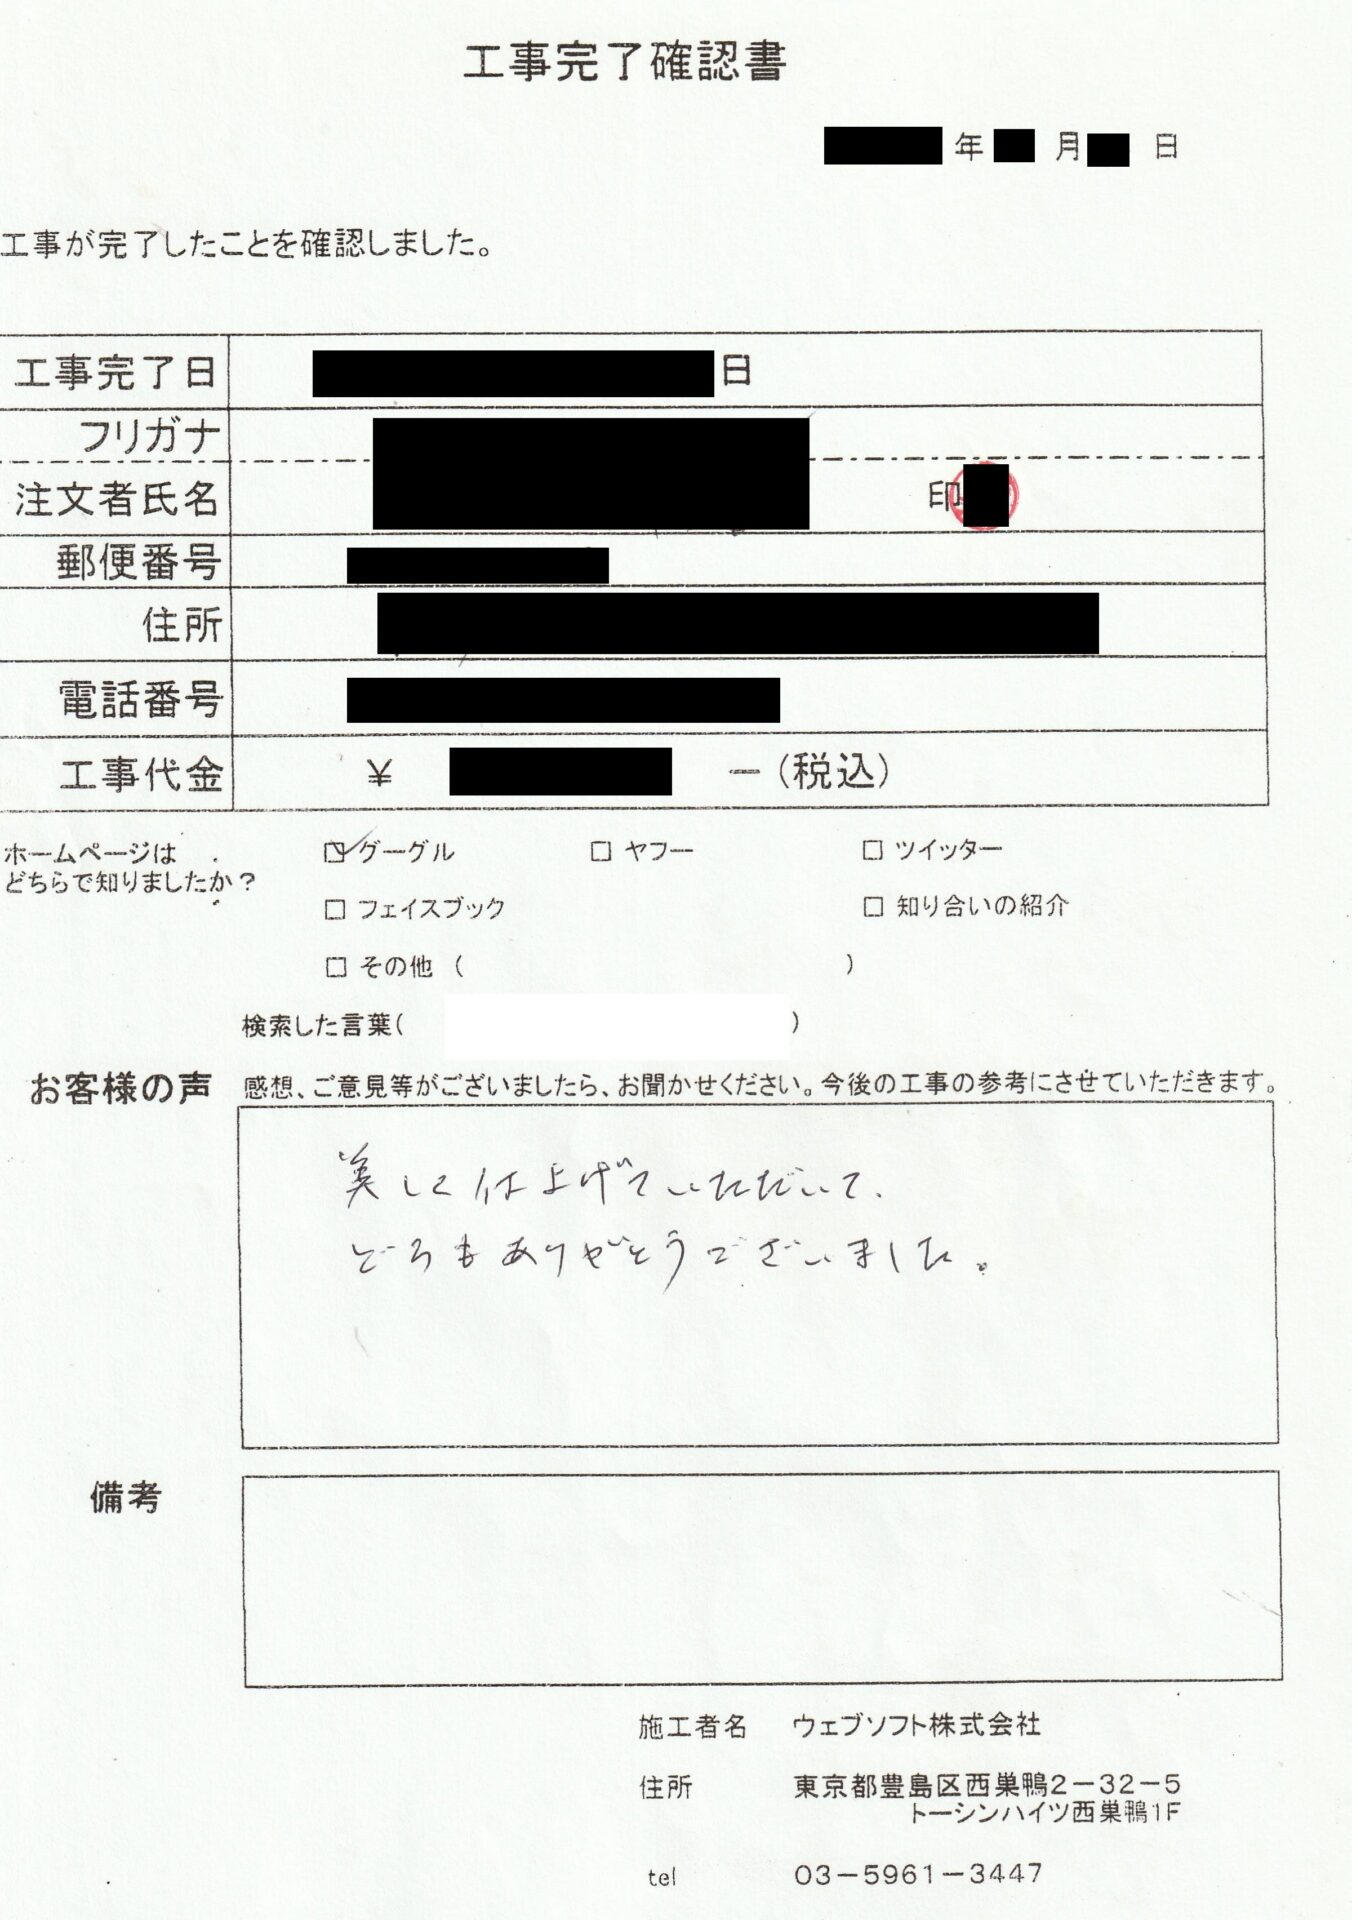 工事完了確認書
年 月 日
工事が完了したことを確認しました。
工事完了日 日
フリガナ
注文者氏名 印
郵便番号
住所
電話番号
工事代金 ¥ ー(税込)
ホームページは
どちらで知りましたか?
☑ グーグル □ ヤフー □ ツイッター
□ フェイスブック □ 知り合いの紹介
□ その他 ( )
検索した言葉( )
お客様の声 感想、ご意見等がございましたら、お聞かせください。今後の工事の参考にさせていただきます。
美しく仕上げていただいて、
どうもありがとうございました。
備考
施工者名 ウェブソフト株式会社
住所 東京都豊島区西巣鴨2-32-5
トーシンハイツ西巣鴨1F
tel 03-5961-3447